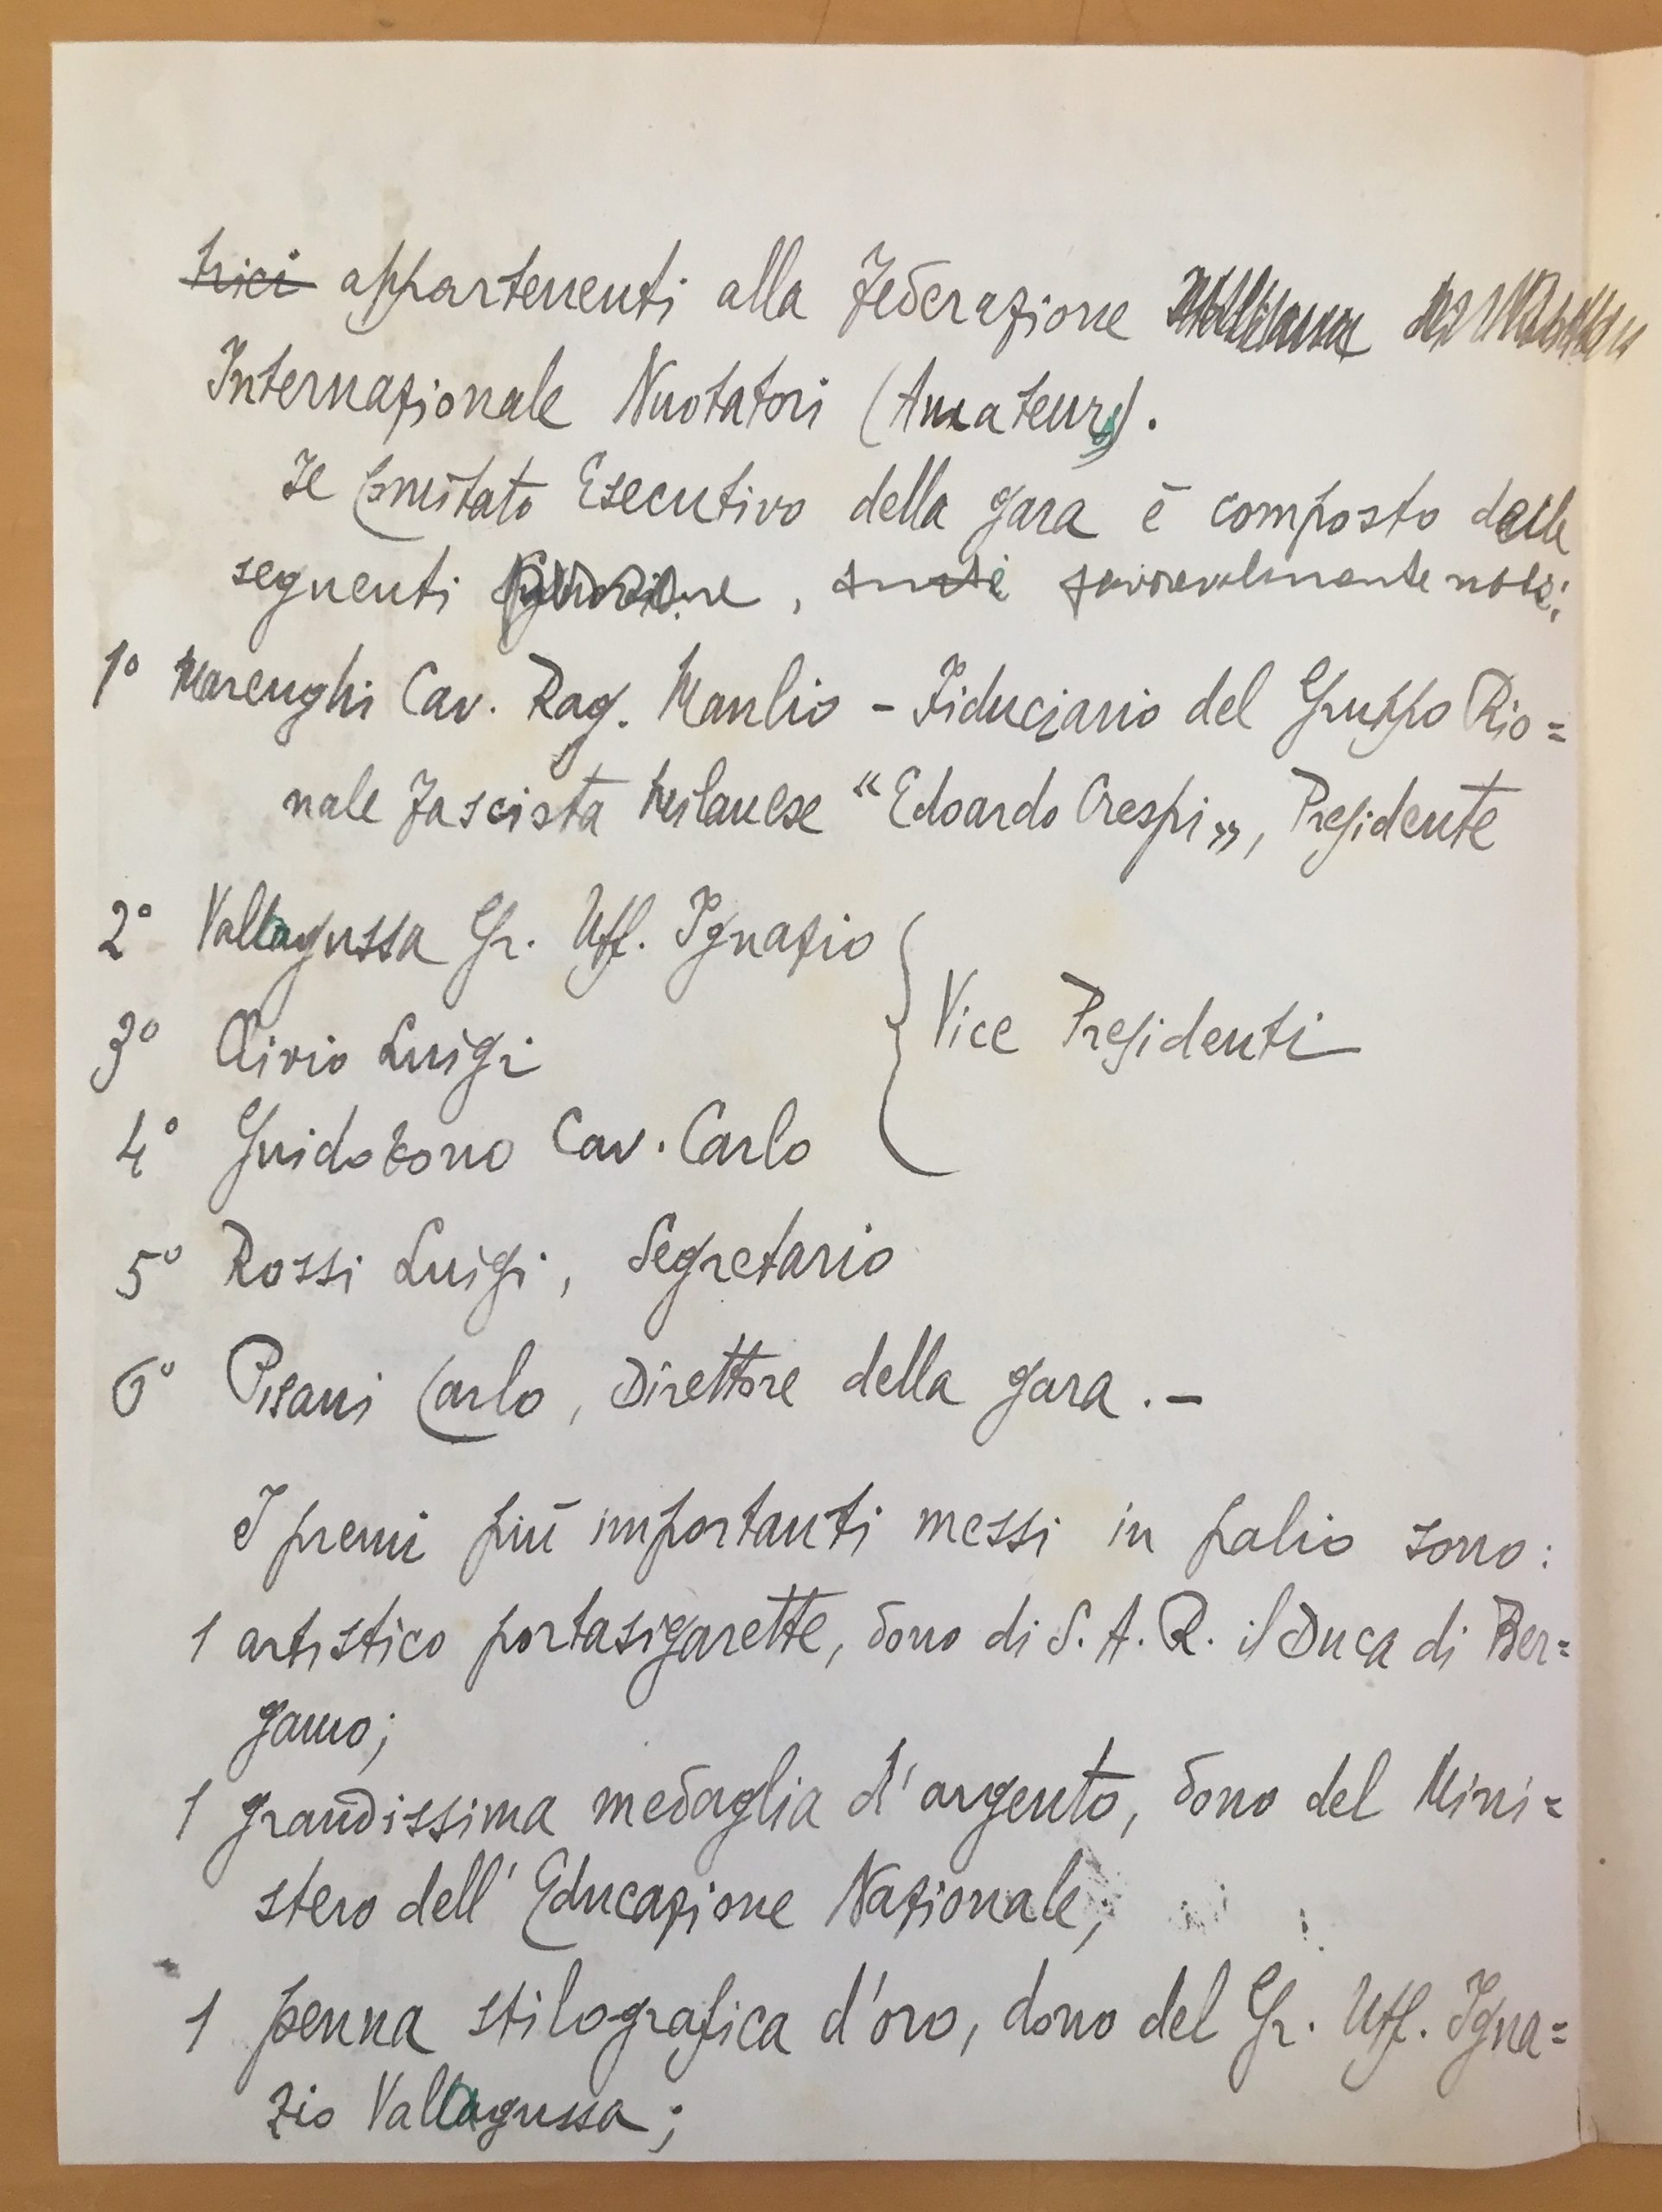 trici appartenenti alla Federazione
Internazionale Nuotatori (Amateurs).
Il Comitato Esecutivo della gara è composto dalle
seguenti persone, note
1° Marenghi Cav. Rag. Manlio - Fiduciario del Gruppo Rio=
nale Fascista Milanese "Edoardo Crespi", Presidente
2° Vallagussa Gr. Uff. Ignazio
3° Clivio Luigi
Vice Presidenti
4° Guidobono Cav. Carlo
5° Rossi Luigi, Segretario
6° Pisani Carlo, Direttore della gara. -
I premi più importanti messi in palio sono:
1 artistico portasigarette, dono di S. A. R. il Duca di Ber=
gamo;
1 grandissima medaglia d'argento, dono del Mini=
stero dell'Educazione Nazionale;
1 penna stilografica d'oro, dono del Gr. Uff. Igna=
zio Vallagussa;